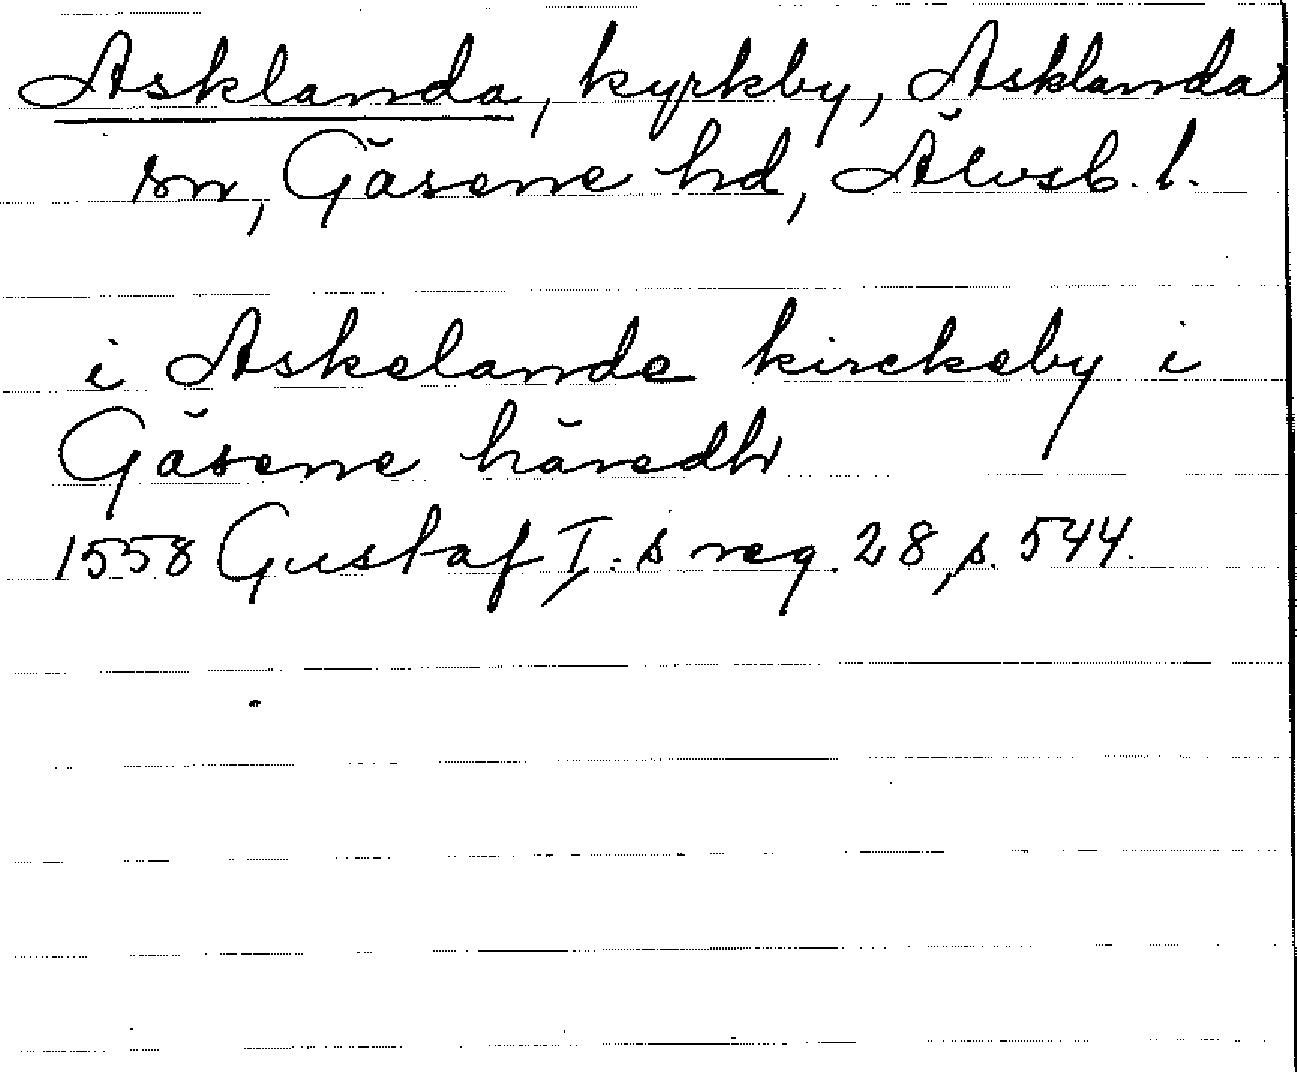 Asklanda, kyrkby, Asklanda
sn, Gäsene hd, Älvsb. l.
i Askelande kirckeby i
Gäsene häredh
1558 Gustaf I:s reg. 28, s. 544.